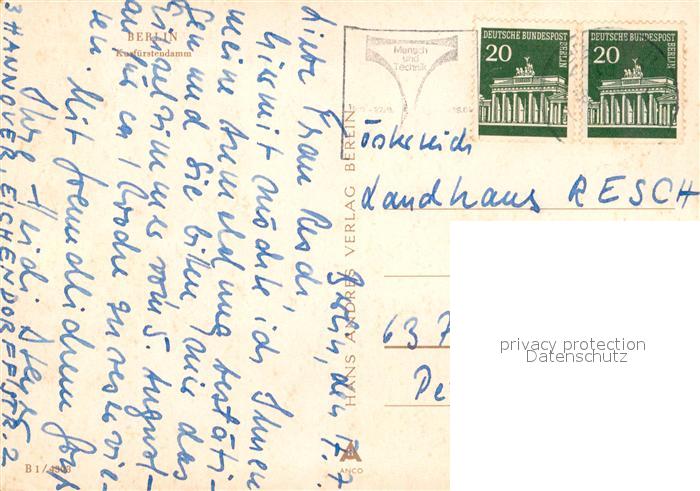 BERLIN
Kurfürstendamm
Berlin, den 17.7.
Liebe Frau Resch
hiermit möchte ich Ihnen
meine Anmeldung bestäti-
gen und Sie bitten, mir das
Einzelzimmer vom 5. August -
an für ca 1 Woche zu reservie-
ren. Mit freundlichem Gruß
Ihre Heidi
3 HANNOVER, EICHENDORFFSTR. 2
B 1/
HANS ANDRES VERLAG BERLIN
ANCO
Mensch
und
Technik
DEUTSCHE BUNDESPOST
BERLIN
20
DEUTSCHE BUNDESPOST
BERLIN
20
Österreich
Landhaus RESCH
637
Pe
privacy protection
Datenschutz